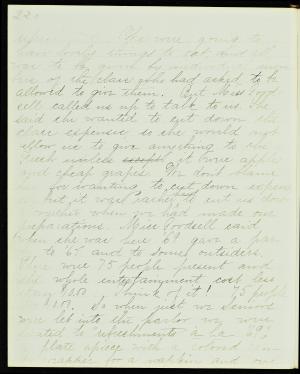 We were going to
have lovely things to eat and all
was to be given by
of the class who had asked to be
allowed to give them. But Miss Good
sell called us up to talk to us. She
said she wanted to cut down the
class expenses so she would not
allow us to give anything to the
Fresh unless it were apples
and cheap grapes. We don't blame
her for wanting to cut down expenses
but it was rather to cut us down
when we had made our
preparations. Miss Goodsell said
when she was here 69 gave a par
to 65 and to some outsiders.
There were 75 people present and
the whole entertainment cost less
than $1.50. Think of it! 75 people
$1.50. So when just we Seniors
were let into the parlor we were
treated to "refreshments a la '69",
plate apiece with a colored
for a napkin and one